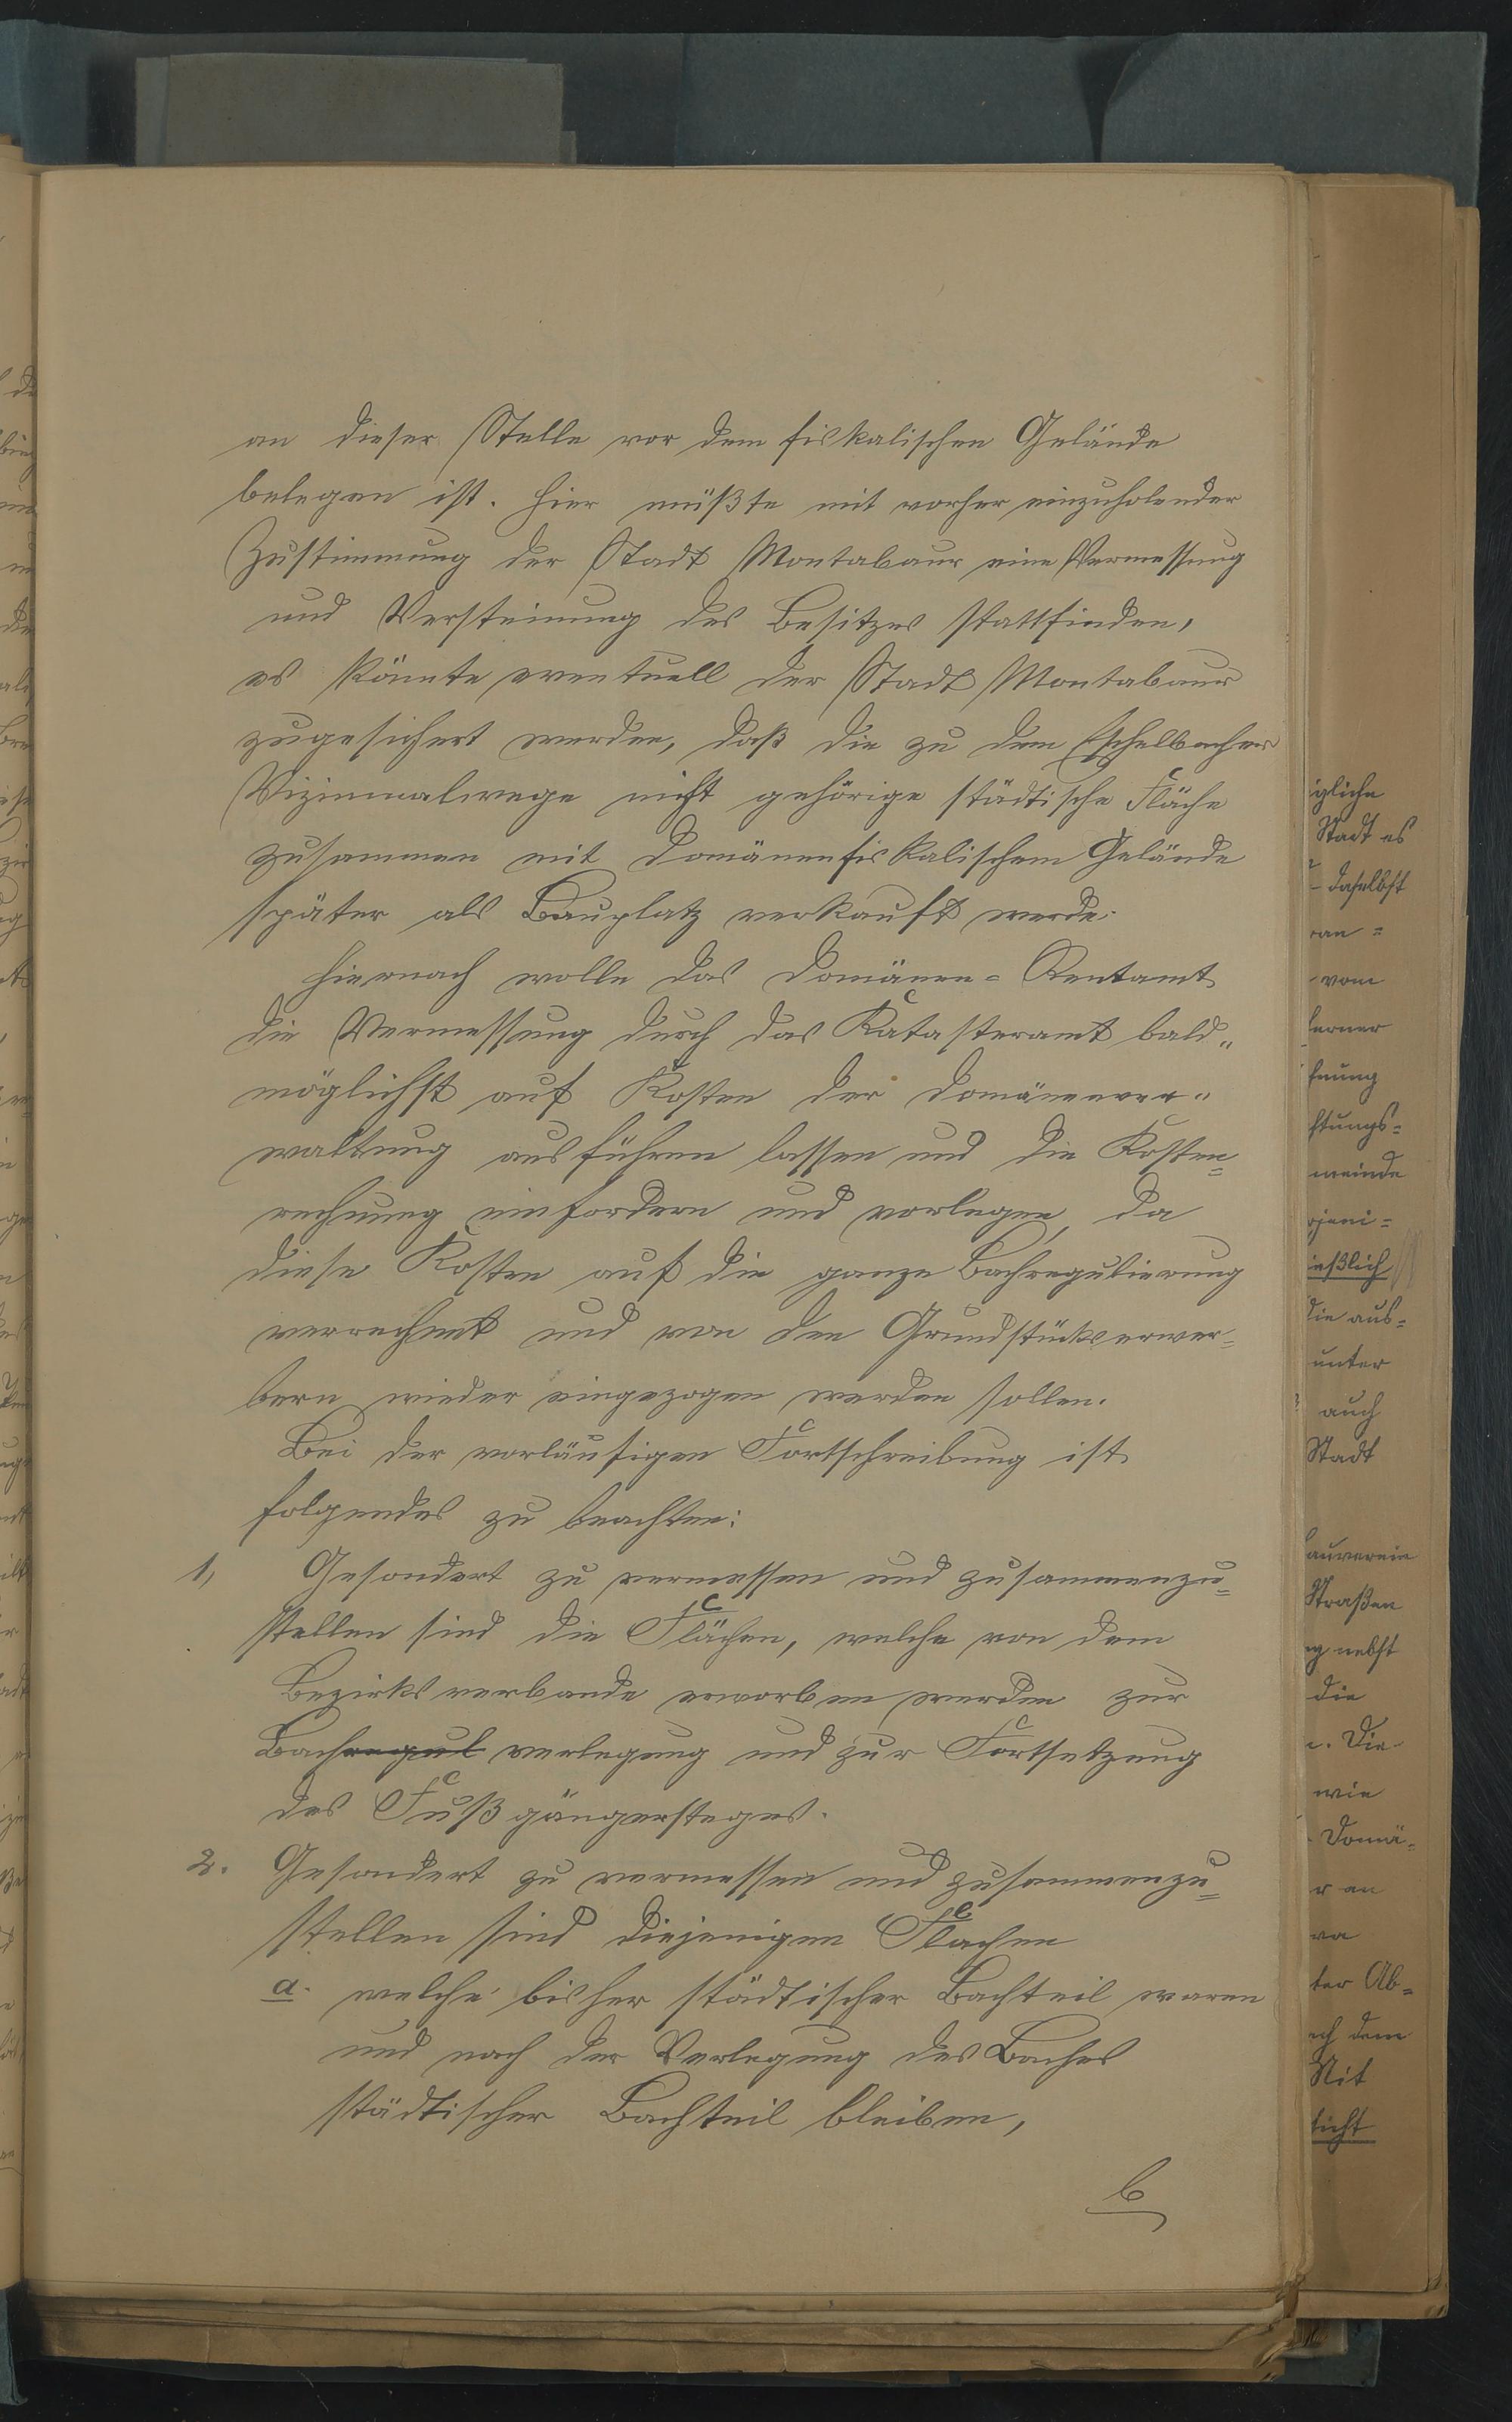 an dieser Stelle vor dem fiskalischen Gelände
belegen ist. Hier müßte mit vorher einzuholender
Zustimmung der Stadt Montabaur eine Vermessung
und Versteinung des Besitzes stattfinden,
es könnte eventuell der Stadt Montabaur
zugesichert werden, daß die zu dem Eschelbacher
Vizinnalwege nicht gehörige städtische Fläche
zusammen mit domänenfiskalischem Gelände
später als Bauplatz verkauft werde.
Hiernach wolle das Domänen-Rentamt
die Vermessung durch das Katasteramt bald„
möglichst auf Kosten der Domänenver„
waltung ausführen lassen und die Kosten=
rechnung einfordern und vorlegen, da
diese Kosten auf die ganze Bachregulierung
verrechnet und von den Grundstückserwer=
bern wieder eingezogen werden sollen.
Bei der vorläufigen Fortschreibung ist
folgendes zu beachten:
1, Gesondert zu vermessen und zusammenzu=
stellen sind die Flächen, welche von dem
Bezirksverbande erworben werden zur
Bachregul verlegung und zur Fortsetzung
des Fußgängersteges.
2. Gesondert zu vermessen und zusammenzu=
stellen sind diejenigen Flachen
a. welche bisher städtischer Bachteil waren
und nach der Verlegung des Baches
städtischer Bachteil bleiben,
b
igliche
Stadt es
daselbst
ran=
vom
ferner
ftungs=
meinde
ießlich
die aus=
unter
auch
Stadt
auverein
Straßen
g nebst
die
Die
wie
Domä=
r an
ter Ab=
ch dem
Mit
licht